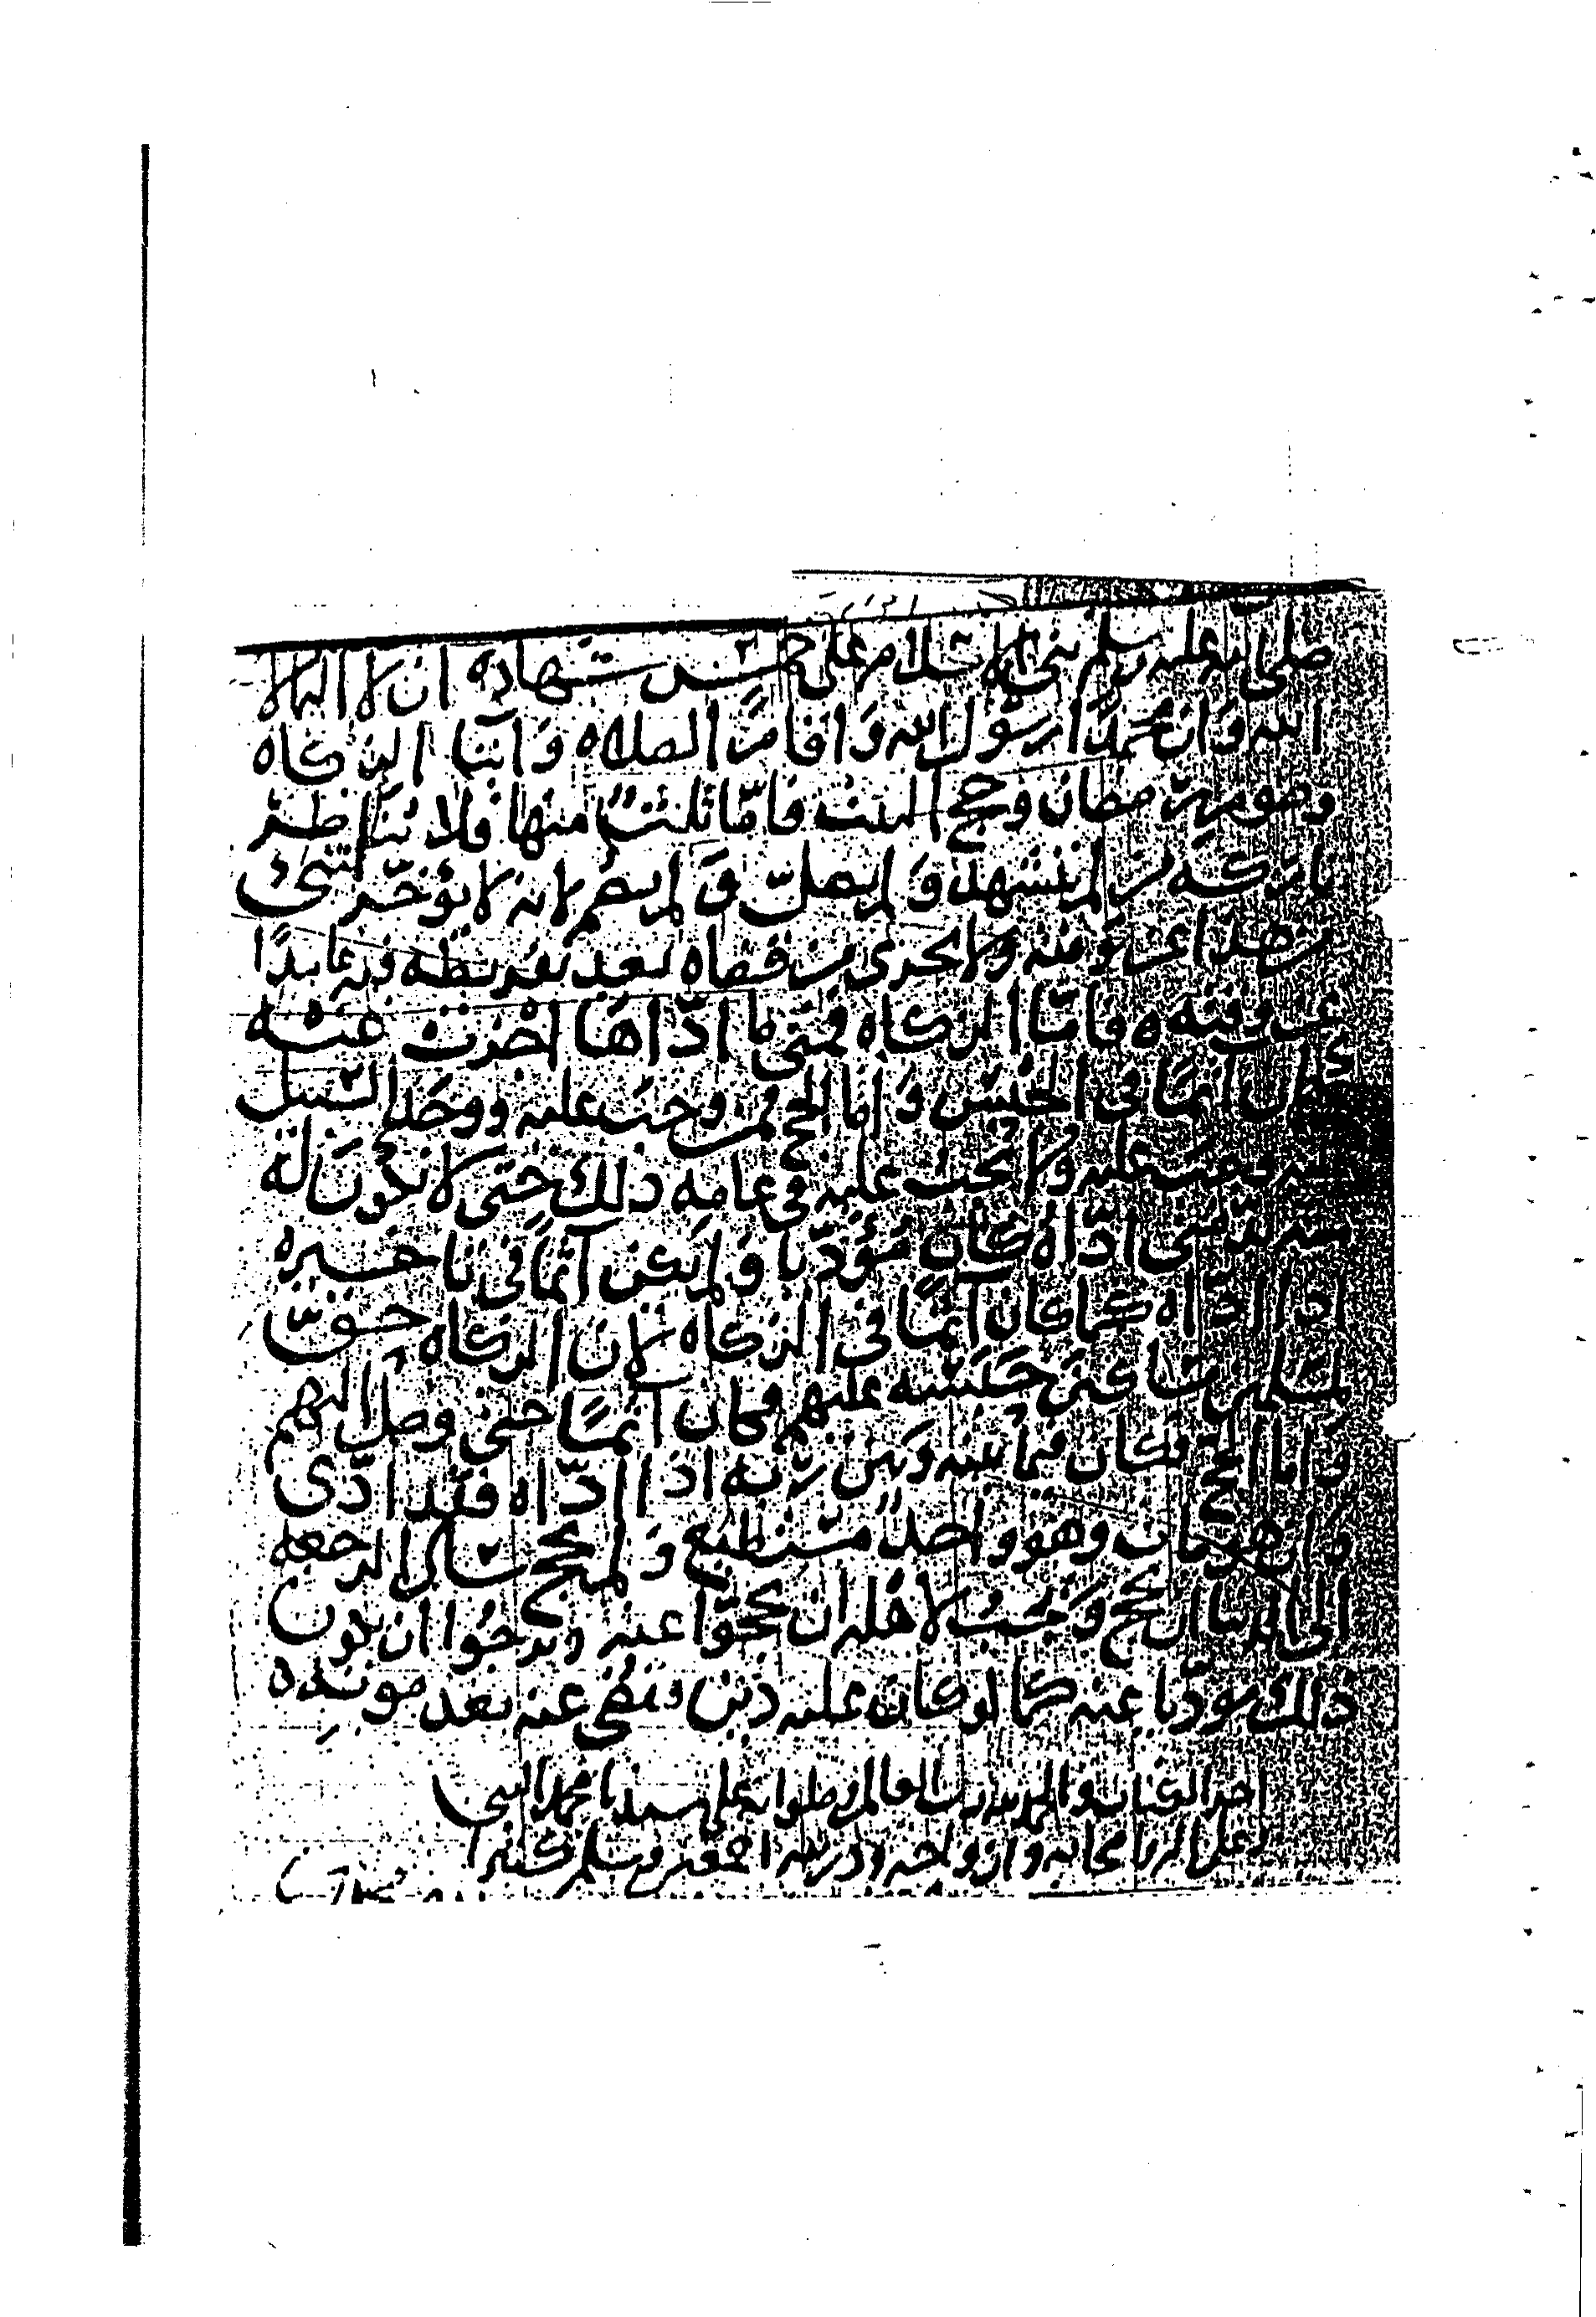 صلى الله عليه وسلم بني الاسلام على خمس شهادة ان لا اله الا
الله وَان محمدًا رسول الله وَاقامِ الصلاه وَايتا الزكاه
وصوم رمضان وحج البيت فامّا ثلثٌ منها فلا يُناظر
بتركه من لم يتشهد وَلم يصلّ وَلم يصم لانه لا يؤخّر شىء
من هذا عن وقته ولا يجزي من قضاه بعد تفريطه فيه عامدًا
عن وقته ه فامّا الزكاه فمتى ما ادّاها اجزت عنه
وكان آثمًا في الحبس وَاما الحج فمن وجب عليه ووجد السبيل
اليه وجب عليه ولا يجب عليه في عامه ذلك حتى لا يكونَ له
منه بدّ متى ادّاه كان مُؤدّيا وَلم يكن آثمًا في تاخيره
اذا ادّاه كما كان آثمًا في الزكاه لان الزكاه حقّ
لمسلمين مساكين حَبَسَه عليهم فكان آثمًا حتى وصل اليهم
وَاما الحج فكان فيما بينه وَبين ربّه اذا ادّاه فقد ادّى
وَان هو مات وهو واجدٌ مستطيع وَلم يحج سال الرجعه
الى الدنيا ان يحج وَيجب لاهله ان يحجّوا عنه ونرجُوا ان يكون
ذلك مودّيا عنه كما لو كان عليه دَين فقُضي عنه بعد موته ه
اخر الكتاب والحمد لله رب العالمين وصلواته على سيدنا محمد النبي
وعلى اله واصحابه وازواجه وذريته اجمعين وسلم كثيرا